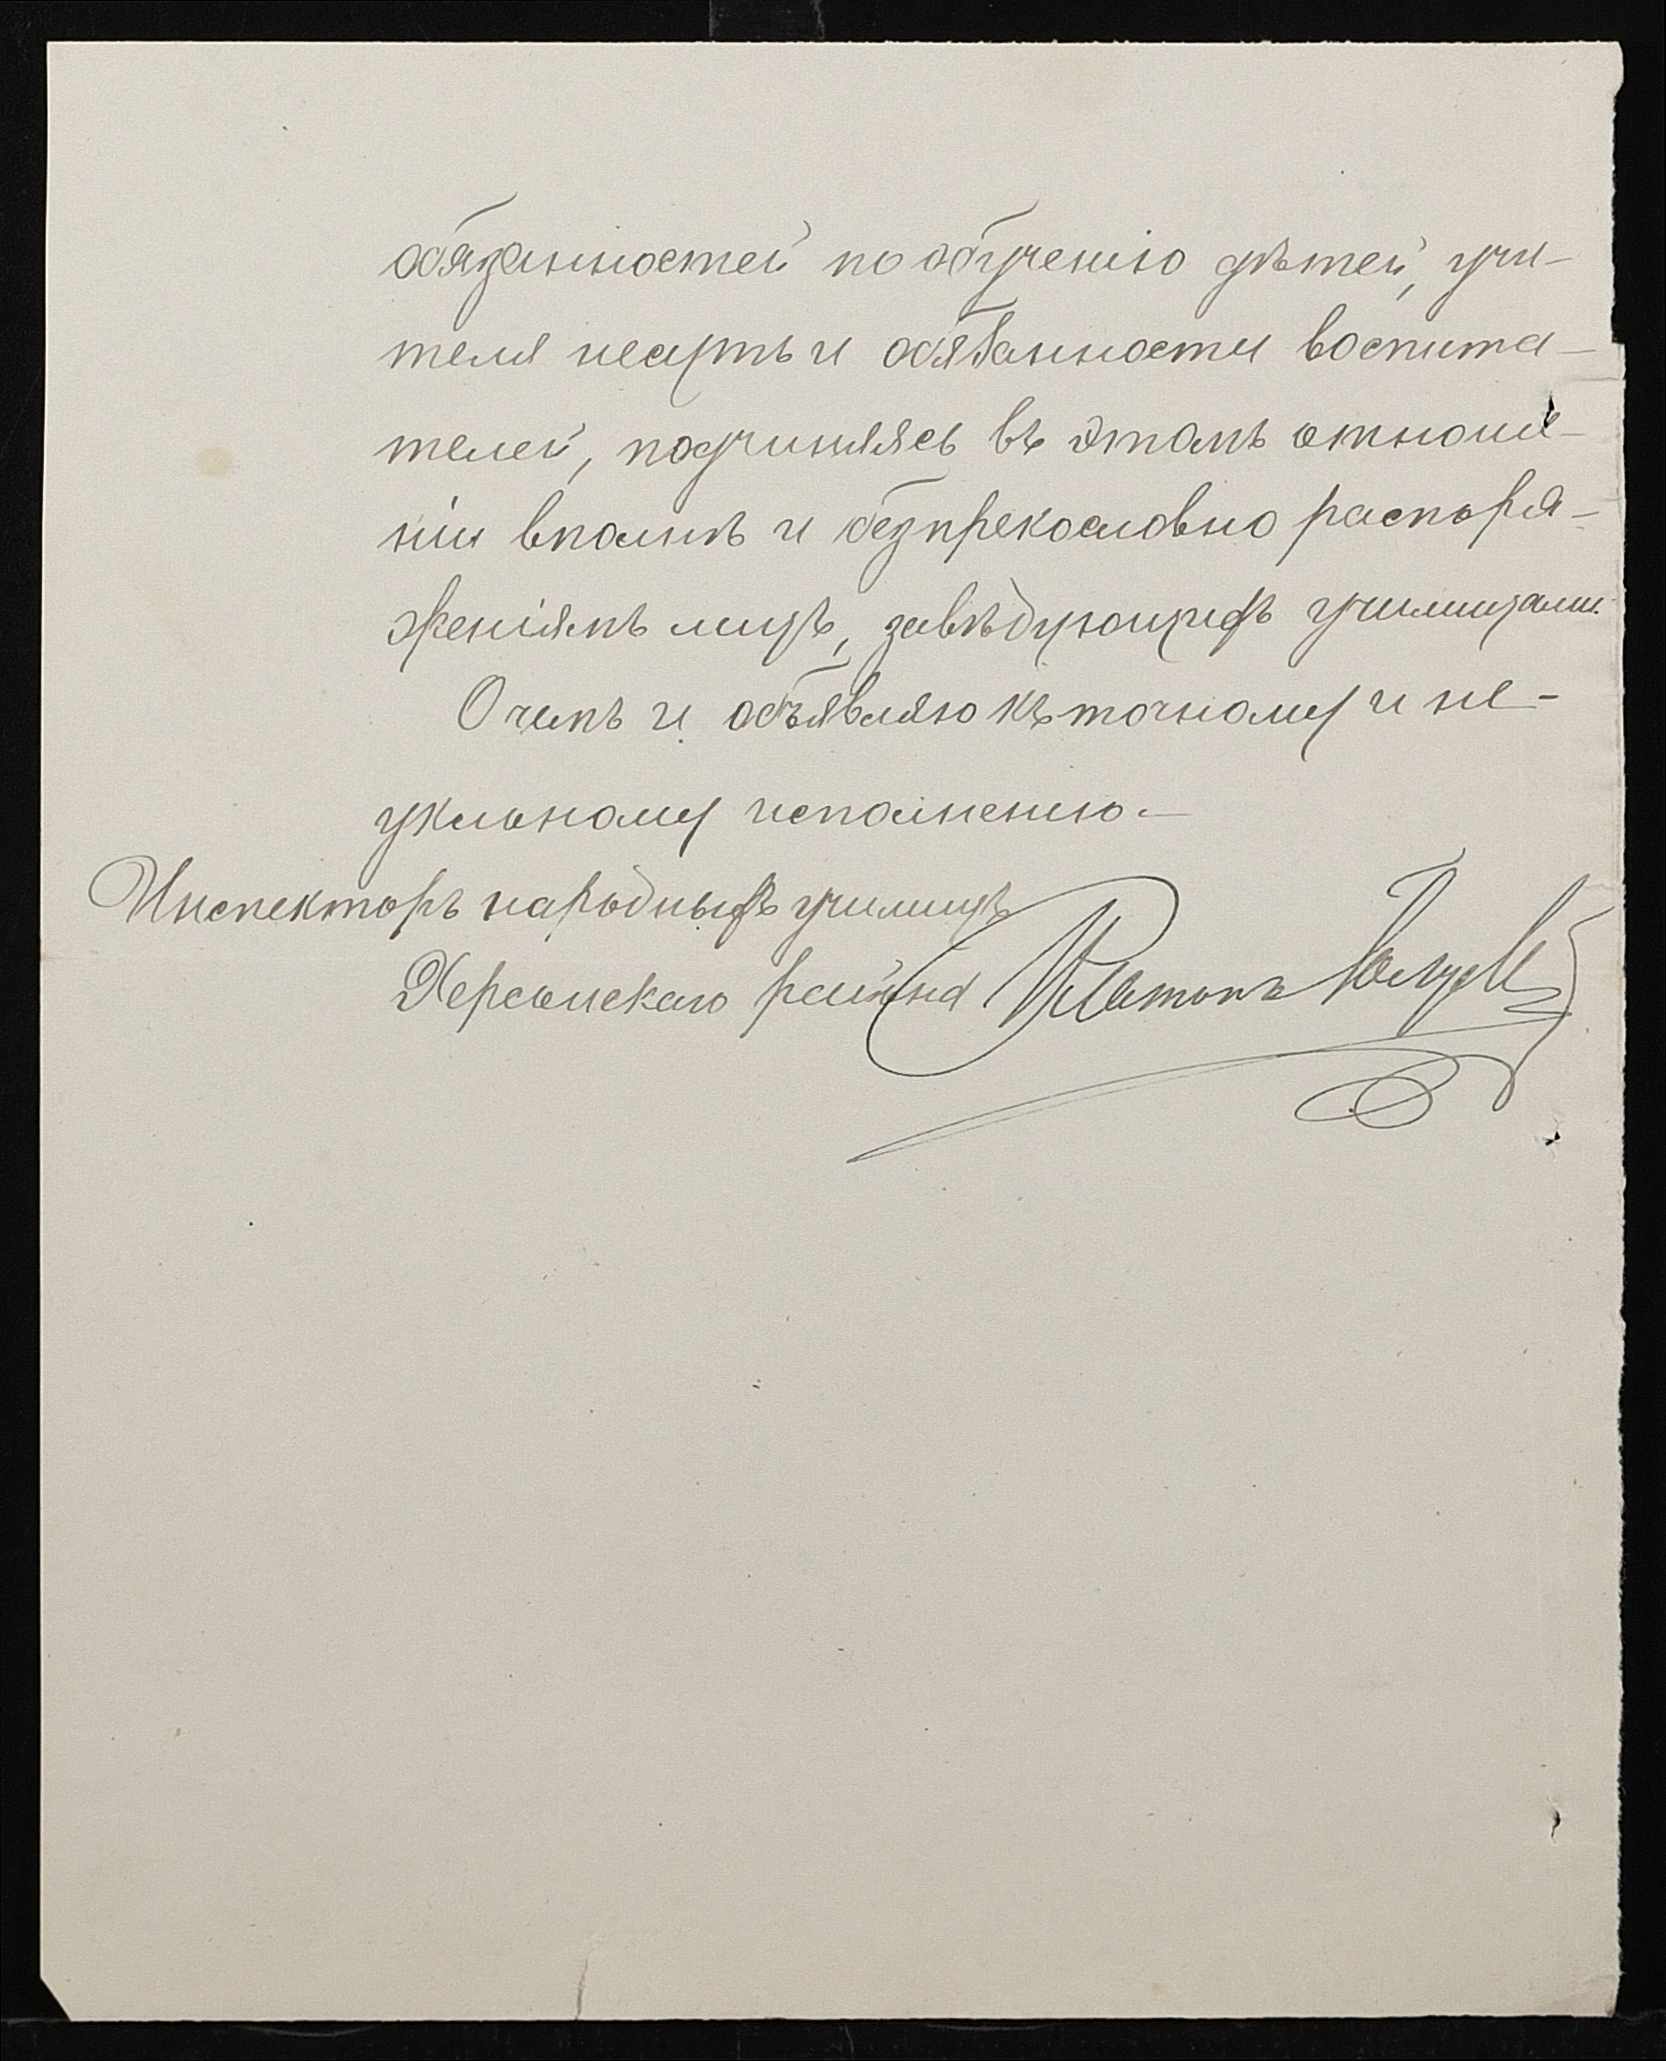 обязанностей по обученію дѣтей, учи-
теля несутъ и обязанности воспита-
телей, подчиняясь въ этомъ отноше-
ніи вполнѣ и безпрекословно распоря-
женіямъ лицъ, завѣдующихъ училищами.
О чемъ и объявляю къ точному и не-
уклонному исполненію.—
Инспекторъ народныхъ училищъ
Херсонскаго района Платонъ